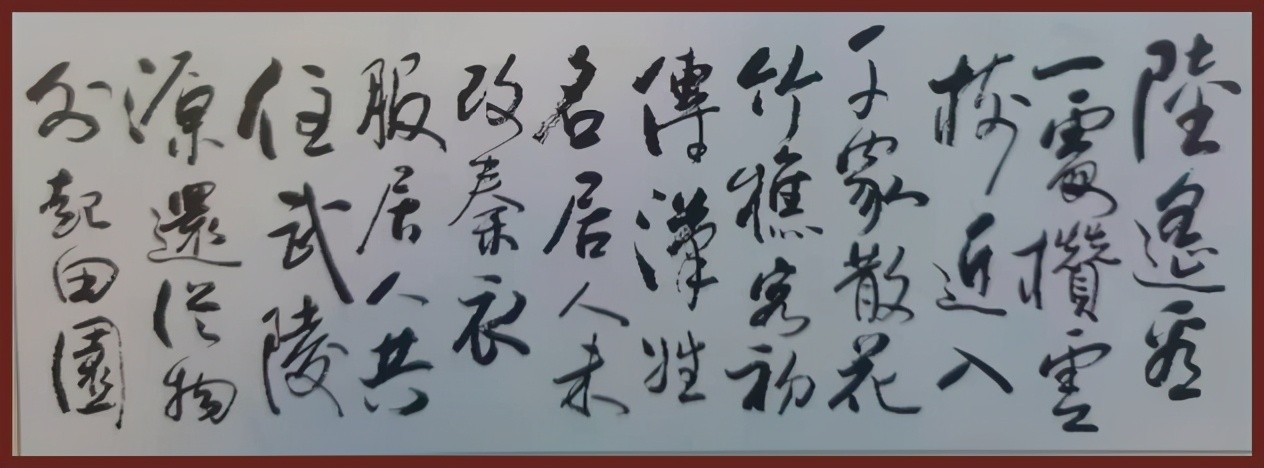 陸遙看
一處攢雲
樹近入
千家散花
竹樵客初
傳漢姓
名居人未
改秦衣
服居人共
住武陵
源還從物
外起田園